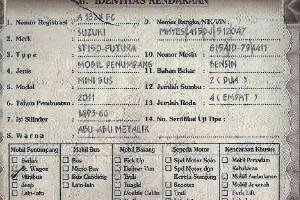 II. IDENTITAS KENDARAAN
1. Nomor Registrasi : A 1828 FC
9. Nomor Rangka/NIK/VIN :
2. Merk : SUZUKI
3. Type : ST150-FUTURA
10. Nomor Mesin :
4. Jenis : MOBIL PENUMPANG
11. Bahan Bakar : BENSIN
5. Model : MINI BUS
12. Jumlah Sumbu : 2 (DUA)
6. Tahun Pembuatan : 2011
13. Jumlah Roda : 4 (EMPAT)
7. Isi Silinder : 1493-60
14. No. Sertifikat Uji Tipe :
8. Warna : ABU-ABU METALIK
Mobil Penumpang Mobil Bus Mobil Barang Sepeda Motor Kendaraan Khusus
Sedan Bus Pick Up Spd Motor Solo Mobil Pemadam
St. Wagon Micro Bus Deliver Van Spd Motor dgn Kebakaran
Minibus Bus Gandeng Truk Kereta Samping Mobil Ambulance
Jeep Lain-lain Tangki Scooter Mobil Jenazah
Lain-lain Double Cabin Fork Lift